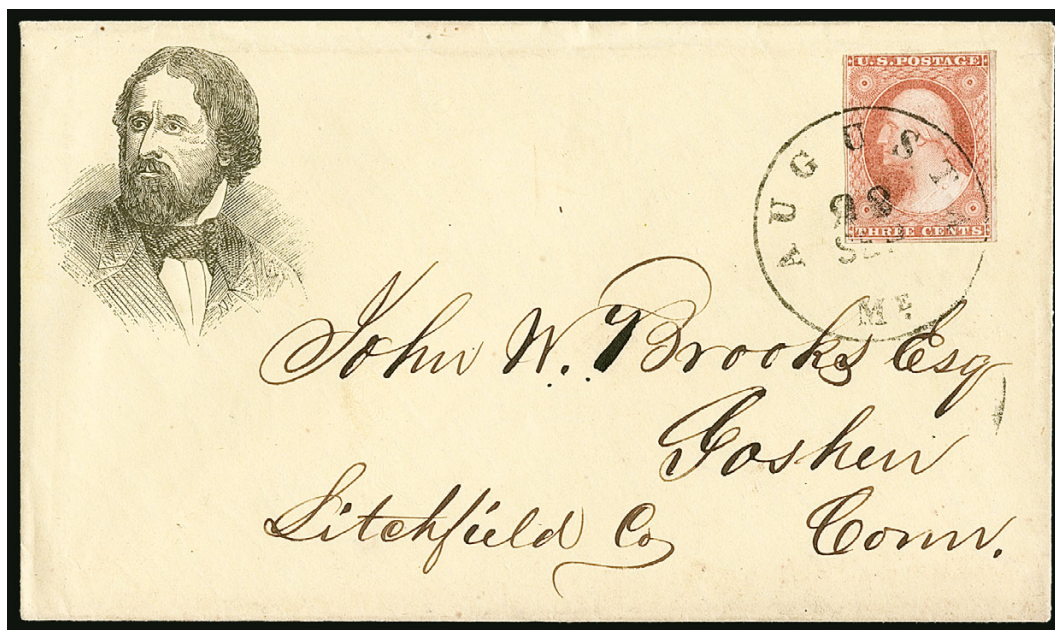 U.S. POSTAGE
THREE CENTS
AUGUSTA
SEP
ME
John W. Brooks Esq
Goshen
Litchfield Co
Conn.